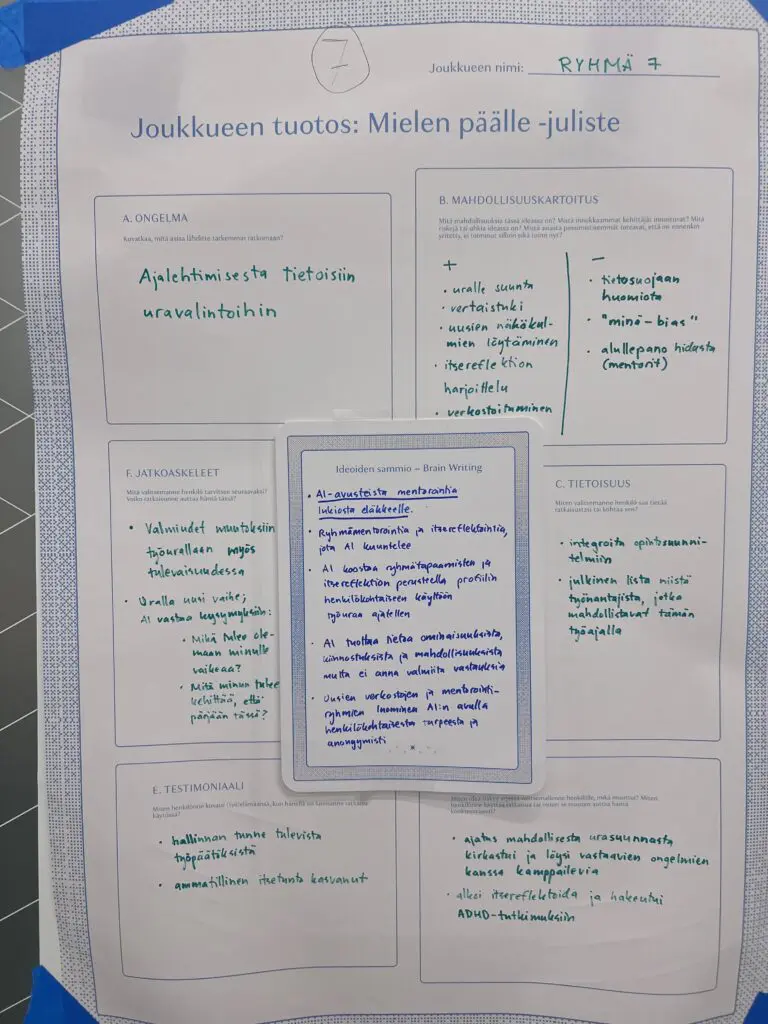 7
Joukkueen nimi: RYHMÄ 7
Joukkueen tuotos: Mielen päälle -juliste
A. ONGELMA
Kuvatkaa, mitä asiaa lähdette tarkemmin ratkomaan?
Ajelehtimisesta tietoisiin
uravalintoihin
B. MAHDOLLISUUSKARTOITUS
Mitä mahdollisuuksia tässä ideassa on? Mistä innokkaimmat kehittäjät innostuvat? Mitä
riskejä tai uhkia ideassa on?
+
• uralle suunta
• vertaistuki
• uusien näkökul-
mien löytäminen
• itsereflektion
harjoittelu
• verkostoituminen
–
• tietosuojaan
huomiota
• "minä-bias"
• alullepano hidasta
(mentorit)
Ideoiden sammio – Brain Writing
• AI-avusteista mentorointia
lukiosta eläkkeelle.
• Ryhmämentorointia ja itsereflektointia,
jota AI kuuntelee
• AI koostaa ryhmätapaamisten ja
itsereflektion perusteella profiilin
henkilökohtaiseen käyttöön
työuraa ajatellen
• AI tuottaa tietoa ominaisuuksista,
kiinnostuksista ja mahdollisuuksista
mutta ei anna valmiita vastauksia
• Uusien verkostojen ja mentorointi-
ryhmien luominen AI:n avulla
henkilökohtaisesta tarpeesta ja
anonyymisti
C. TIETOISUUS
Miten valitsemanne henkilö saa tietää
ratkaisustasi tai kohtaa sen?
• integroita opintosuunni-
telmiin
• julkinen lista niistä
työnantajista, jotka
mahdollistavat tämän
työajalla
F. JATKOASKELEET
Mitä valitsemanne henkilö tarvitsee seuraavaksi?
Voiko ratkaisunne auttaa häntä tässä?
• Valmiudet muutoksiin
työurallaan myös
tulevaisuudessa
• Uralla uusi vaihe;
AI vastaa kysymyksiin:
• Mikä tulee ole-
maan minulle
vaikeaa?
• Mitä minun tulee
kehittää, että
pärjään tässä?
E. TESTIMONIAALI
• hallinnan tunne tulevista
työpäätöksistä
• ammatillinen itsetunto kasvanut
• ajatus mahdollisesta urasuunnasta
kirkastui ja löysi vastaavien ongelmien
kanssa kamppailevia
• alkoi itsereflektoida ja hakeutui
ADHD-tutkimuksiin